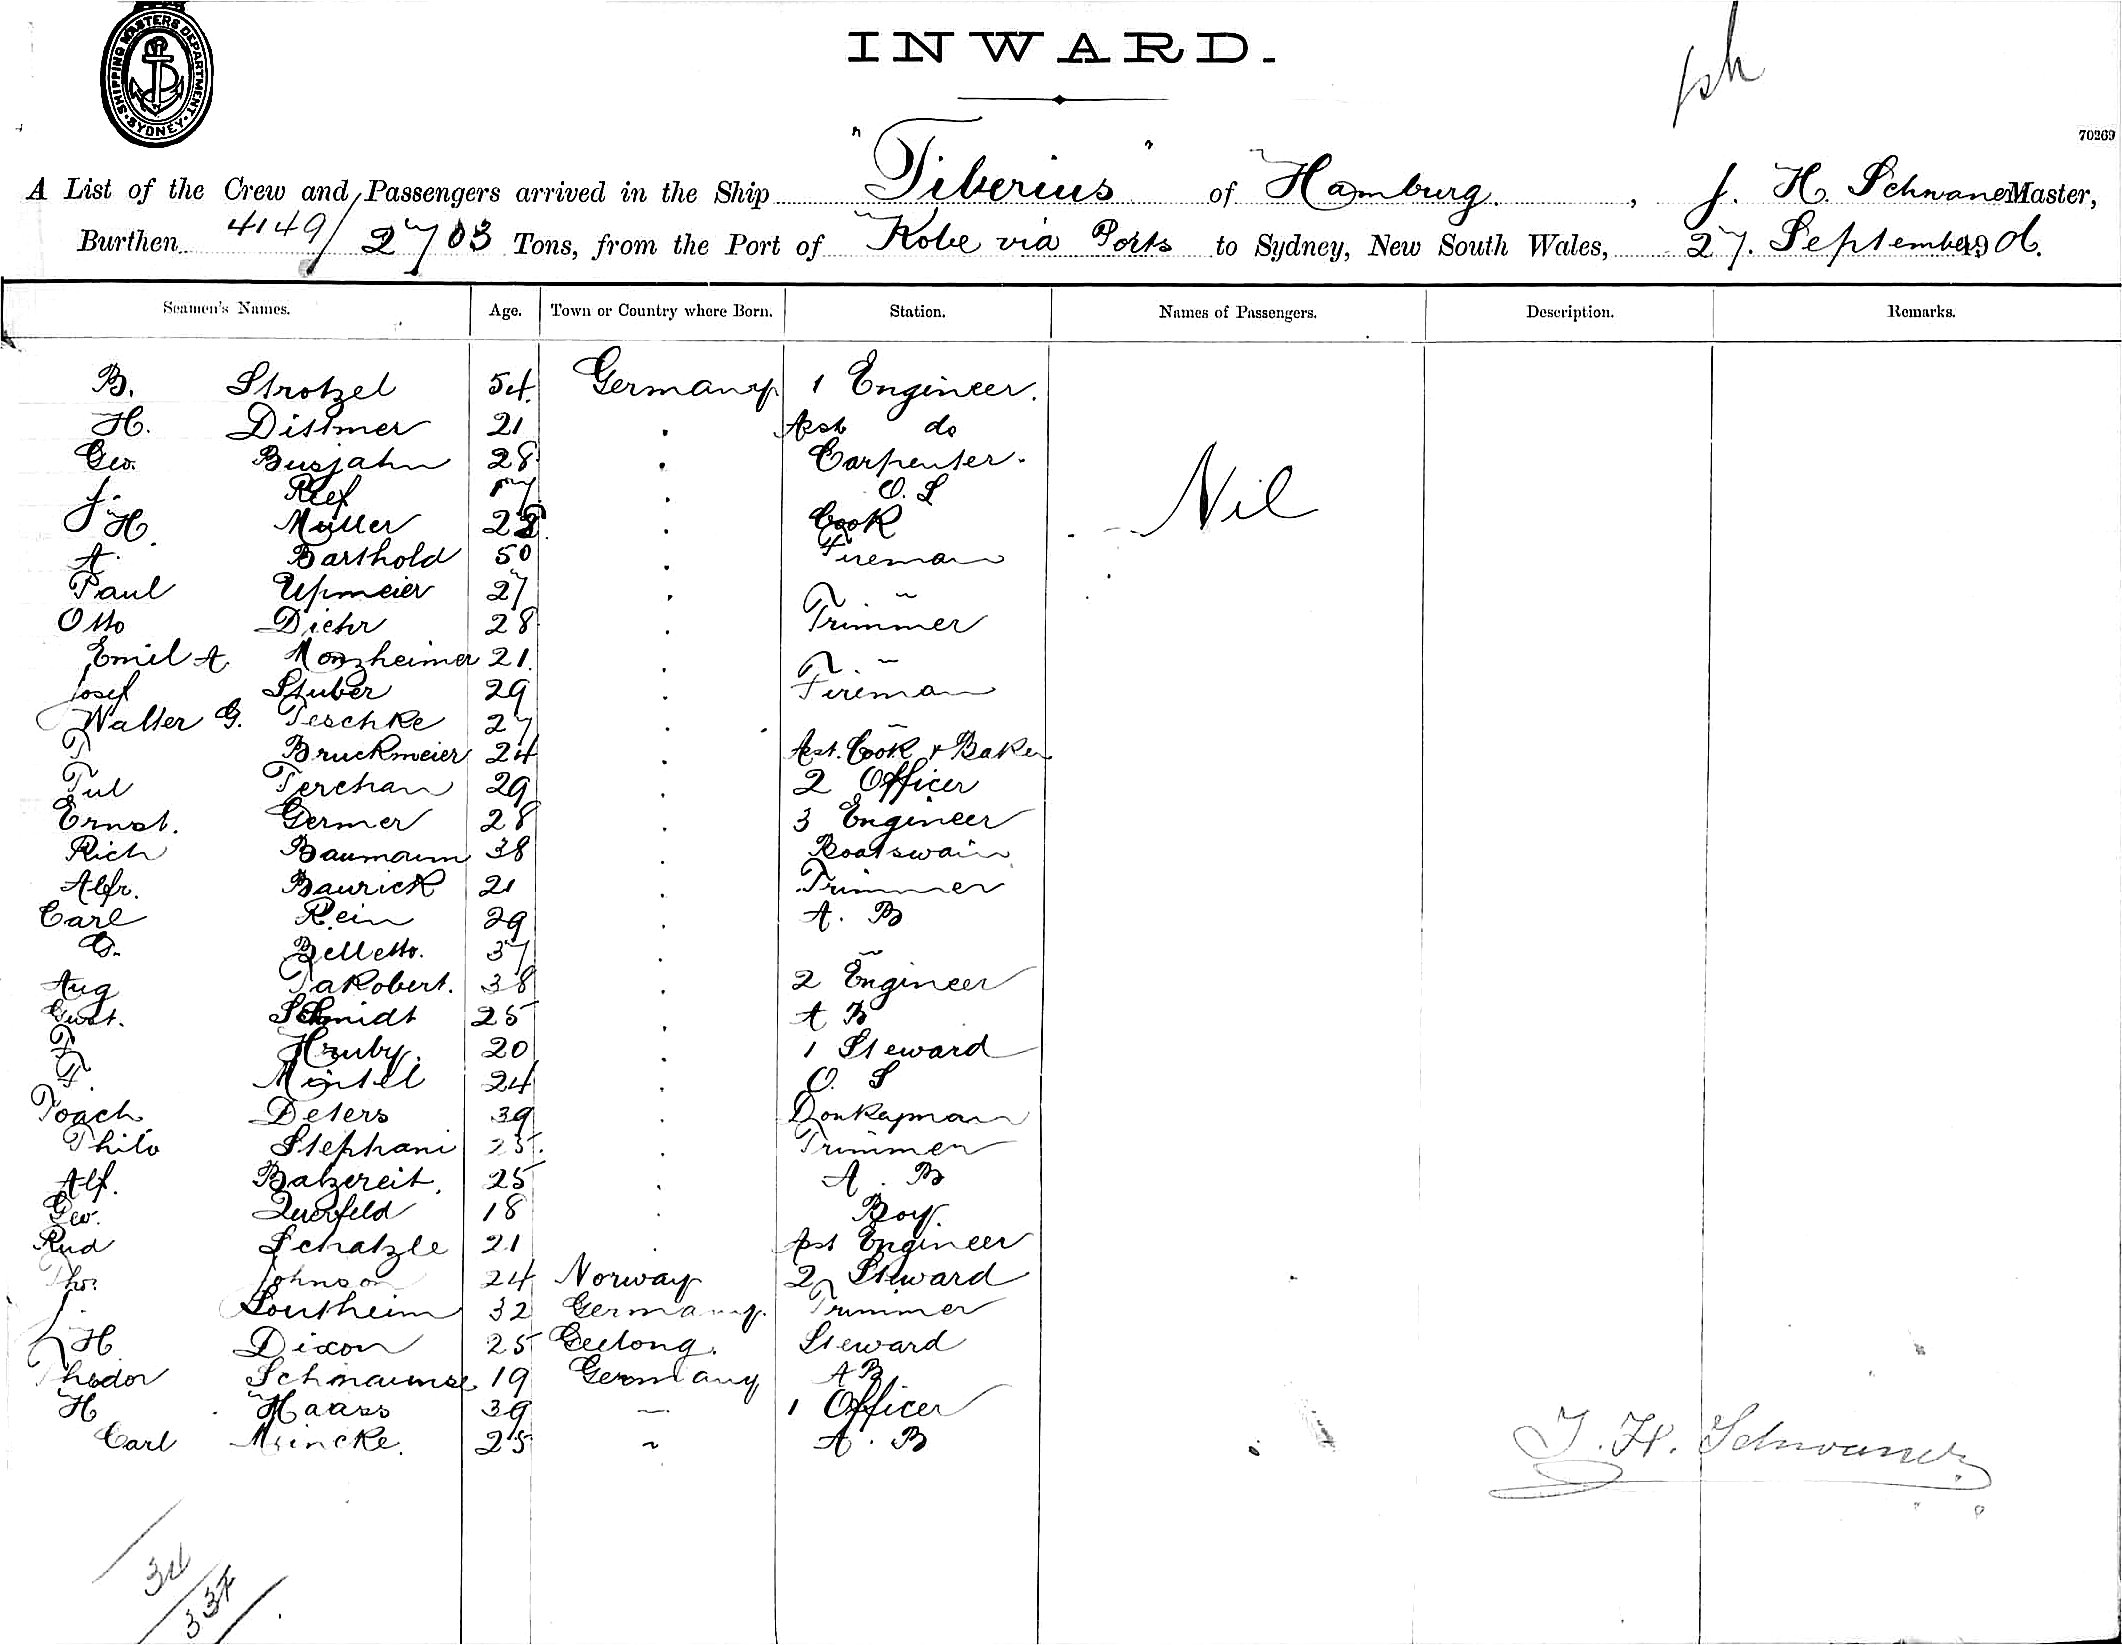 SHIPPING MASTERS DEPARTMENT SYDNEY
INWARD.
70269
A List of the Crew and Passengers arrived in the Ship "Tiberius" of Hamburg, J. H. Schwaner Master,
Burthen 4149/2703 Tons, from the Port of Kobe via Ports to Sydney, New South Wales, 27. September 1906.
Seamen's Names. Age. Town or Country where Born. Station. Names of Passengers. Description. Remarks.
B. Strotzel 54 Germany 1 Engineer.
H. Dittmer 21 " Asst do
Geo. Busjahn 28 " Carpenter.
J. Reef 17 " O. S
H. Müller 22 " Cook
Nil
A. Barthold 50 " Fireman
Paul Upmeier 27 " "
Otto Diehr 28 " Trimmer
Emil A. Monzheimer 21 " "
Josef Stuber 29 " Fireman
Walter G. Teschke 27 " "
T Bruckmeier 24 " Asst. Cook & Baker
Jul Terchan 29 " 2 Officer
Ernst. Germer 28 " 3 Engineer
Rich Baumann 38 " Boatswain
Alfr. Baurick 21 " Trimmer
Carl Rein 29 " A. B
G. Belletto. 37 " "
Aug Jakobert. 38 " 2 Engineer
Gust. Schmidt 25 " A B
F Hruby. 20 " 1 Steward
F. Mintel 24 " O. S
Joach Deters 39 " Donkeyman
Thilo Stephani 25 " Trimmer
Alf. Batzereit. 25 " A. B
Geo. Querfeld 18 " Boy.
Rud Schatzle 21 " Asst Engineer
Tho: Johnson 24 Norway 2 Steward
J. Southeim 32 Germany. Trimmer
H Dixon 25 Geelong. Steward
Theodor Schnaumse 19 Germany A B
H Haass 39 " 1 Officer
Carl Meincke. 25 " A. B
J. H. Schwaner
34
33